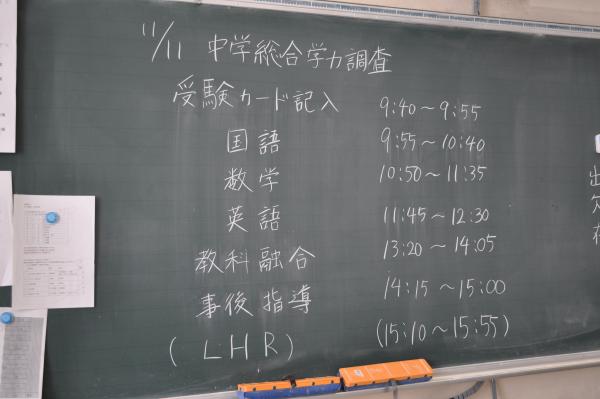 11/11 中学総合学力調査
受験カード記入 9:40～9:55
国語 9:55～10:40
数学 10:50～11:35
英語 11:45～12:30
教科融合 13:20～14:05
事後指導 14:15～15:00
(LHR) (15:10～15:55)
出
欠